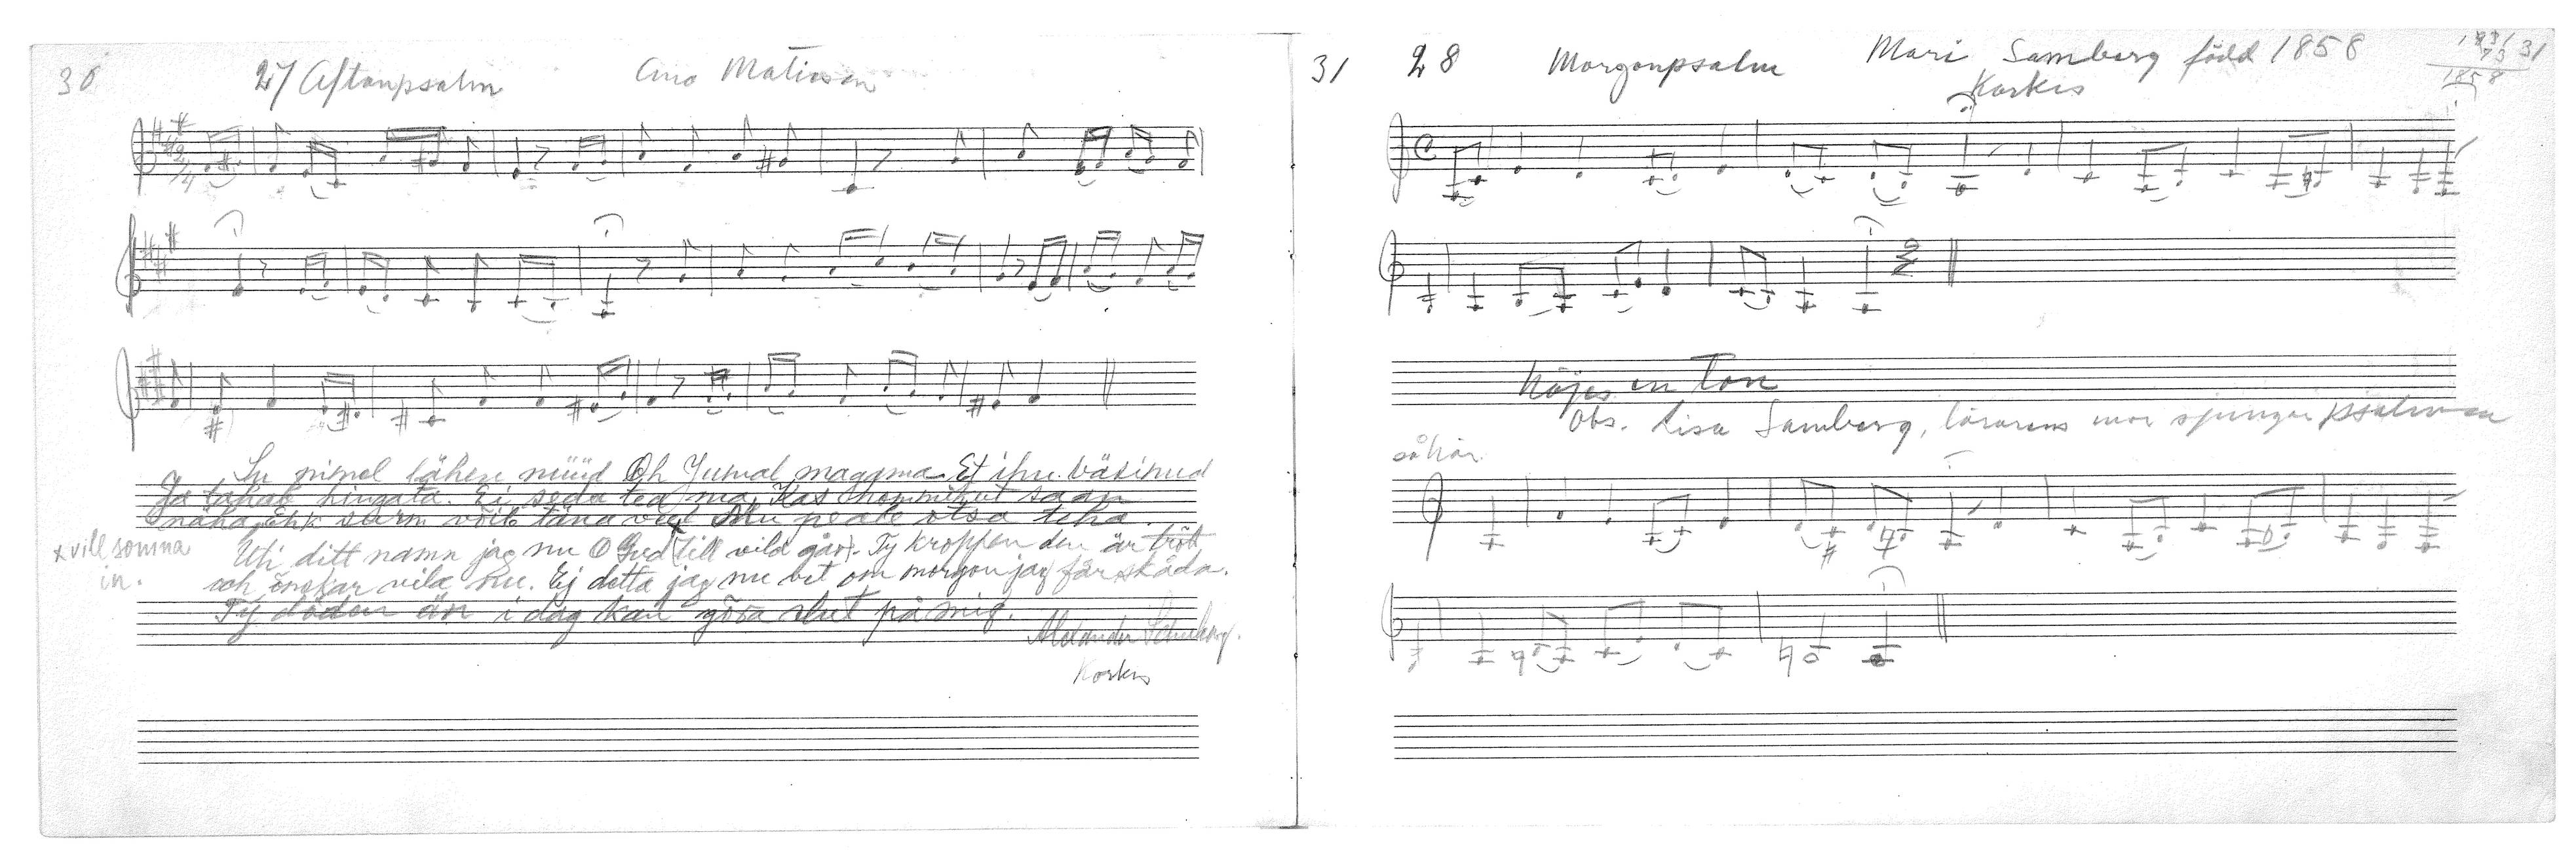 30
27 Aftonpsalm
Ano Matinson
Su nimel lähen nüüd Oh Jumal maggma Et ihu väsinud
Ja tahab hingata. Ei seda tea ma, Kas hommikut saan
näha, Ehk surm võib täna veel Mu peale otsa teha.
x vill somna
in.
Uti ditt namn jag nu O Gud x (till vila går). Ty kroppen den är trött
och önskar vila nu. Ej detta jag nu vet om morgon jag får skåda.
Ty döden än i dag kan göra slut på mig.
Alexander
Korkis
31
28
Morgonpsalm
Mari Samberg född 1858
Korkis
1931
73
1858
31
höjes en ton
Obs. Lisa Samberg, lärarens mor sjunger psalmen
så här